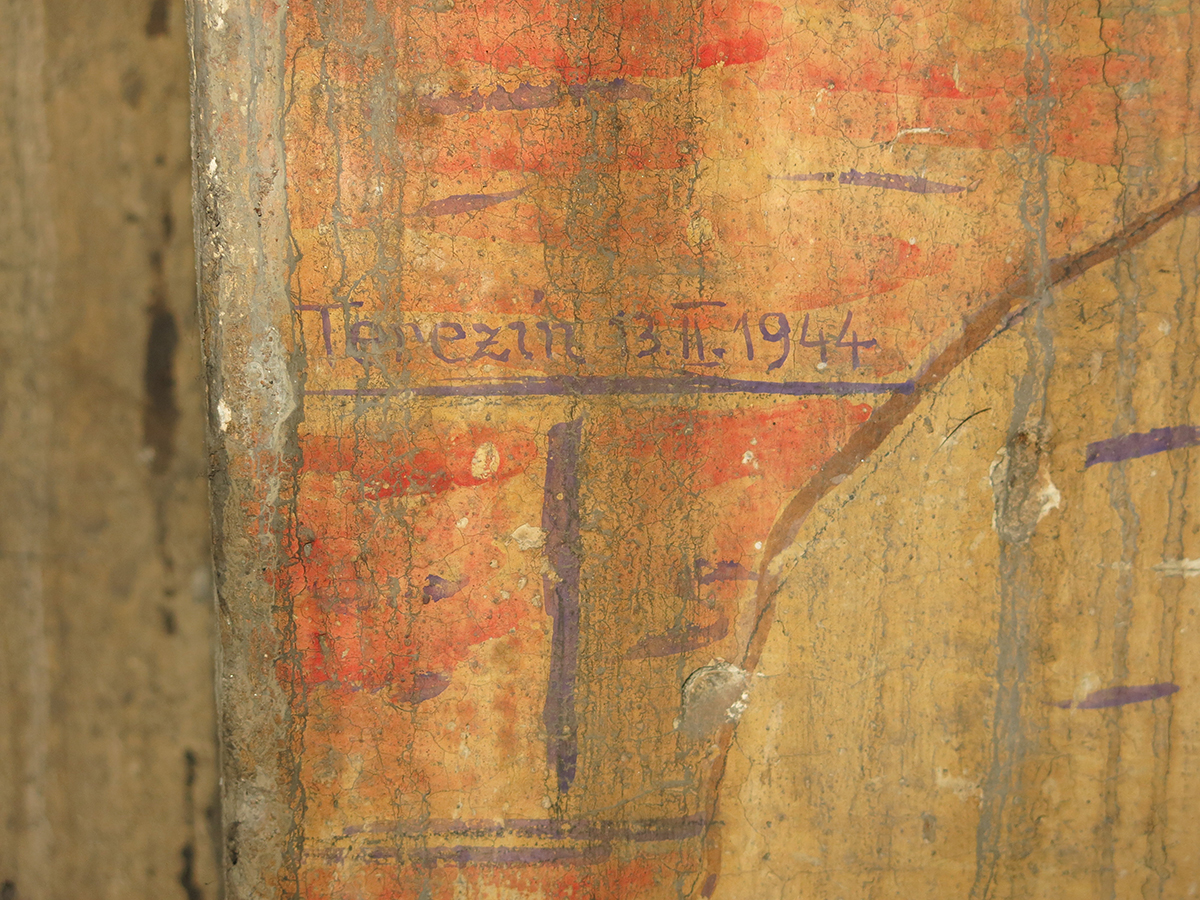 Terezín 13.II.1944